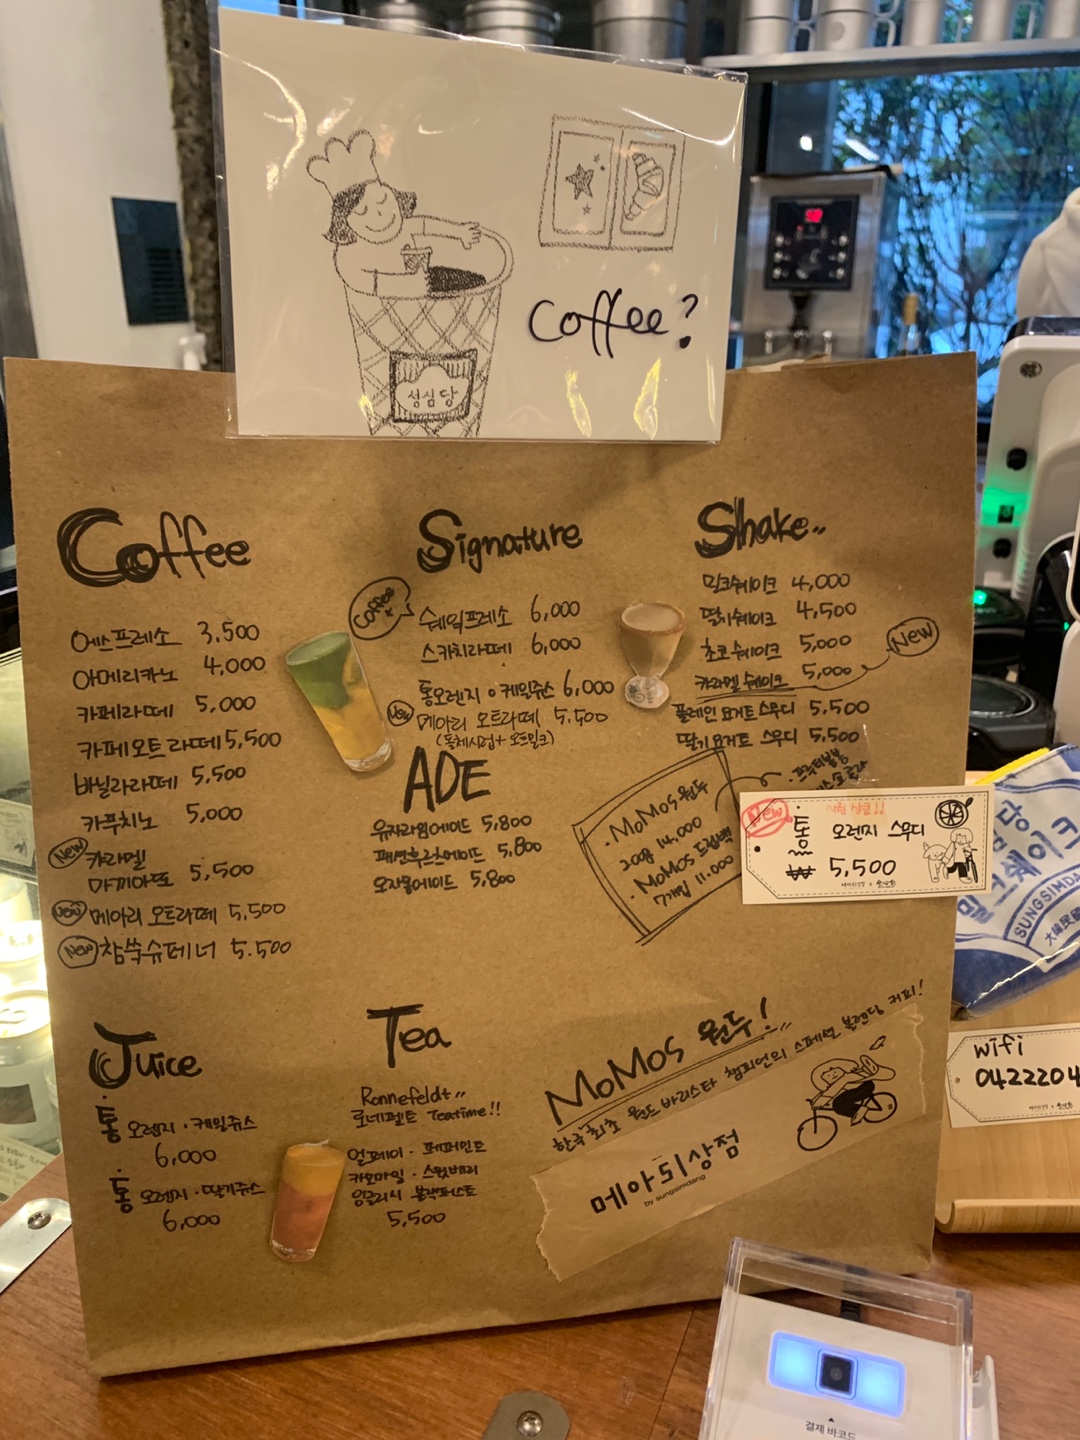 Coffee?
성심당
Coffee
에스프레소 3,500
아메리카노 4,000
카페라떼 5,000
카페오트라떼 5,500
바닐라라떼 5,500
카푸치노 5,000
New 카라멜
마끼아또 5,500
New 메아리 오트라떼 5,500
New 참쑥슈페너 5.500
Signature
Coffee x
쉐익프레소 6,000
스카치라떼 6,000
통오렌지 케일쥬스 6,000
New 메아리 오트라떼 5,500
(돌체시럽+오트밀크)
ADE
유자라임에이드 5,800
패션후르츠에이드 5,800
오자몽에이드 5,800
Shake
밀크쉐이크 4,000
딸기쉐이크 4,500
초코쉐이크 5,000
카라멜 쉐이크 5,000 New
플레인 요거트 스무디 5,500
딸기 요거트 스무디 5,500
· MoMos 원두
200g 14,000
· MoMos 드립백
7개입 11.000
New
통 오렌지 스무디
₩ 5,500
밀크쉐이크
SUNGSIMDA
大韓民
wifi
0422204
Juice
통 오렌지·케일쥬스
6,000
통 오렌지·딸기쥬스
6,000
Tea
Ronnefeldt
로네펠트 Teatime!!
얼그레이 · 페퍼민트
카모마일 · 스윗베리
잉글리시 블랙퍼스트
5,500
MoMos 원두!
한국 최초 월드바리스타 챔피언의 스페셜 블렌딩 커피!
메아리상점
by sungsimdang
결제 바코드